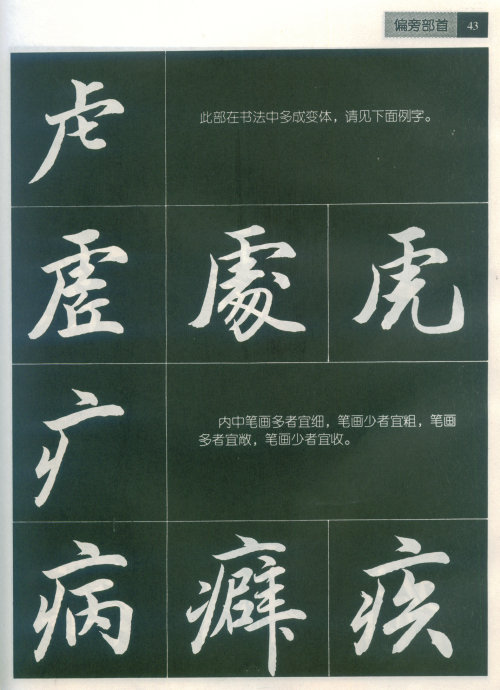 偏旁部首 43
虍
此部在书法中多成变体，请见下面例字。
虚 處 虎
疒
内中笔画多者宜细，笔画少者宜粗，笔画
多者宜敞，笔画少者宜收。
病 癖 疾